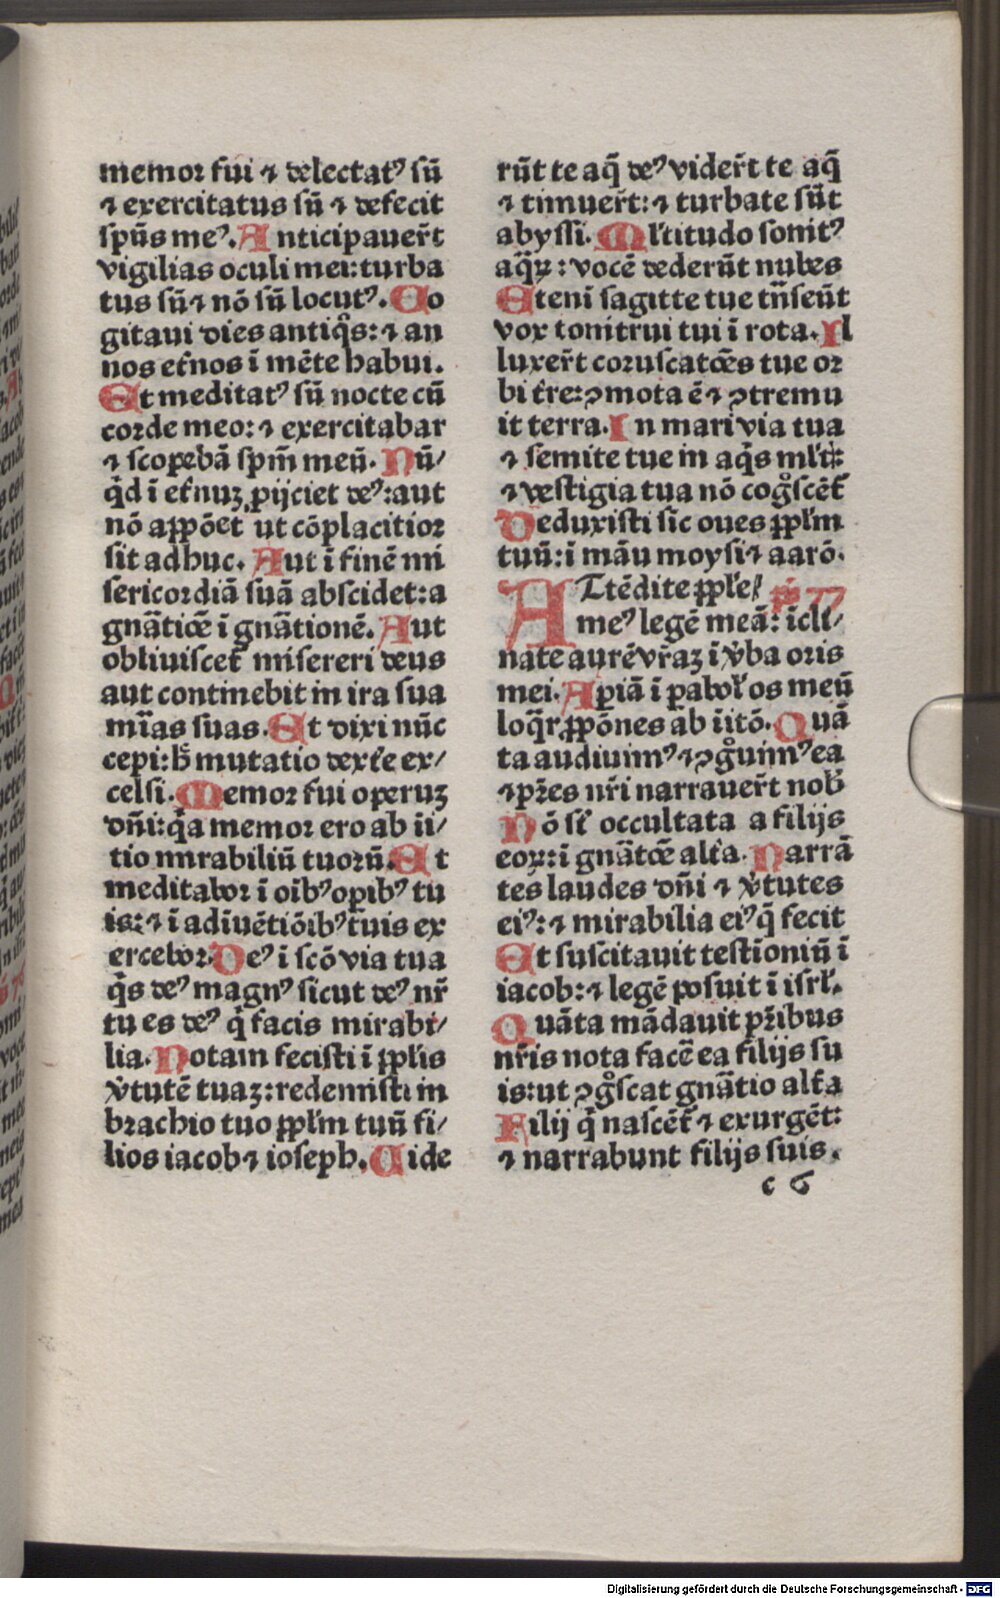 memor fui ⁊ delectatꝰ sū
⁊ exercitatus sū ⁊ defecit
spūs meꝰ. Anticipauer̄t
vigilias oculi mei: turba
tus sū ⁊ nō sū locutꝰ. Co
gitaui dies antiq̄s: ⁊ an
nos et̄nos ī mēte habui.
Et meditatꝰ sū nocte cū
corde meo: ⁊ exercitabar
⁊ scopebā spm̄ meū. Nū/
q̄d ī et̄nuz ꝓijciet deꝰ: aut
nō appōet ut cōplacitior
sit adhuc. Aut ī finē mi
sericordiā suā abscidet: a
gnātiōe ī gnātionē. Aut
obliuiscet̄ misereri deus
aut continebit in ira sua
mīas suas. Et dixi nūc
cepi: h̄ mutatio dext̄e ex/
celsi. Memor fui operuz
dn̄i: q̄a memor ero ab ii/
tio mirabiliū tuorū. Et
meditabor ī oībꝰ opibꝰ tu
is: ⁊ ī adīuētiōibꝰ tuis ex
ercebor: Deꝰ ī scō via tua
q̄s deꝰ magnꝰ sicut deꝰ nr̄
tu es deꝰ q̄ facis mirabi/
lia. Notam fecisti ī ppl̄is
v̄tutē tuaz: redemisti in
brachio tuo ppl̄m tuū fi/
lios iacob ⁊ ioseph. Vide
rūt te aq̄ deꝰ vider̄t te aq̄
⁊ timuer̄t: ⁊ turbate sūt
abyssi. Ml̄titudo sonitꝰ
aq̄ꝝ: vocē dederūt nubes
Eteni sagitte tue tn̄seūt
vox tonitrui tui ī rota. Il
luxer̄t coruscatōes tue or
bi t̄re: ↄmota ē ⁊ ↄtremu
it terra. In mari via tua
⁊ semite tue in aq̄s ml̄t:
⁊ vestigia tua nō cog̊scēt̄
Deduxisti sic oues ppl̄m
tuū: ī māu moysi ⁊ aarō.
ATtēdite ppl̄e/ ps̄ 77
meꝰ legē meā: īcli/
nate aurē vr̄az ī v̄ba oris
mei. Apiā ī pabol̄ os meū
loq̄r ꝓpōnes ab īitō. Quā
ta audiuimꝰ ⁊ ↄg̊uimꝰ ea
⁊ pr̄es nr̄i narrauer̄t nob̄
Nō st̄ occultata a filijs
eoꝝ: ī gnātōe alt̄a. Narrā
tes laudes dn̄i ⁊ v̄tutes
eiꝰ: ⁊ mirabilia eiꝰ q̄ fecit
Et suscitauit testīoniū ī
iacob: ⁊ legē posuit ī isrl̄.
Quāta mādauit pr̄ibus
nr̄is nota facē ea filijs su
is: ut ↄg̊scat gnātio alt̄a
Filij q̄ nascēt̄ ⁊ exurgēt:
⁊ narrabunt filijs suis.
c 6
Digitalisierung gefördert durch die Deutsche Forschungsgemeinschaft - DFG